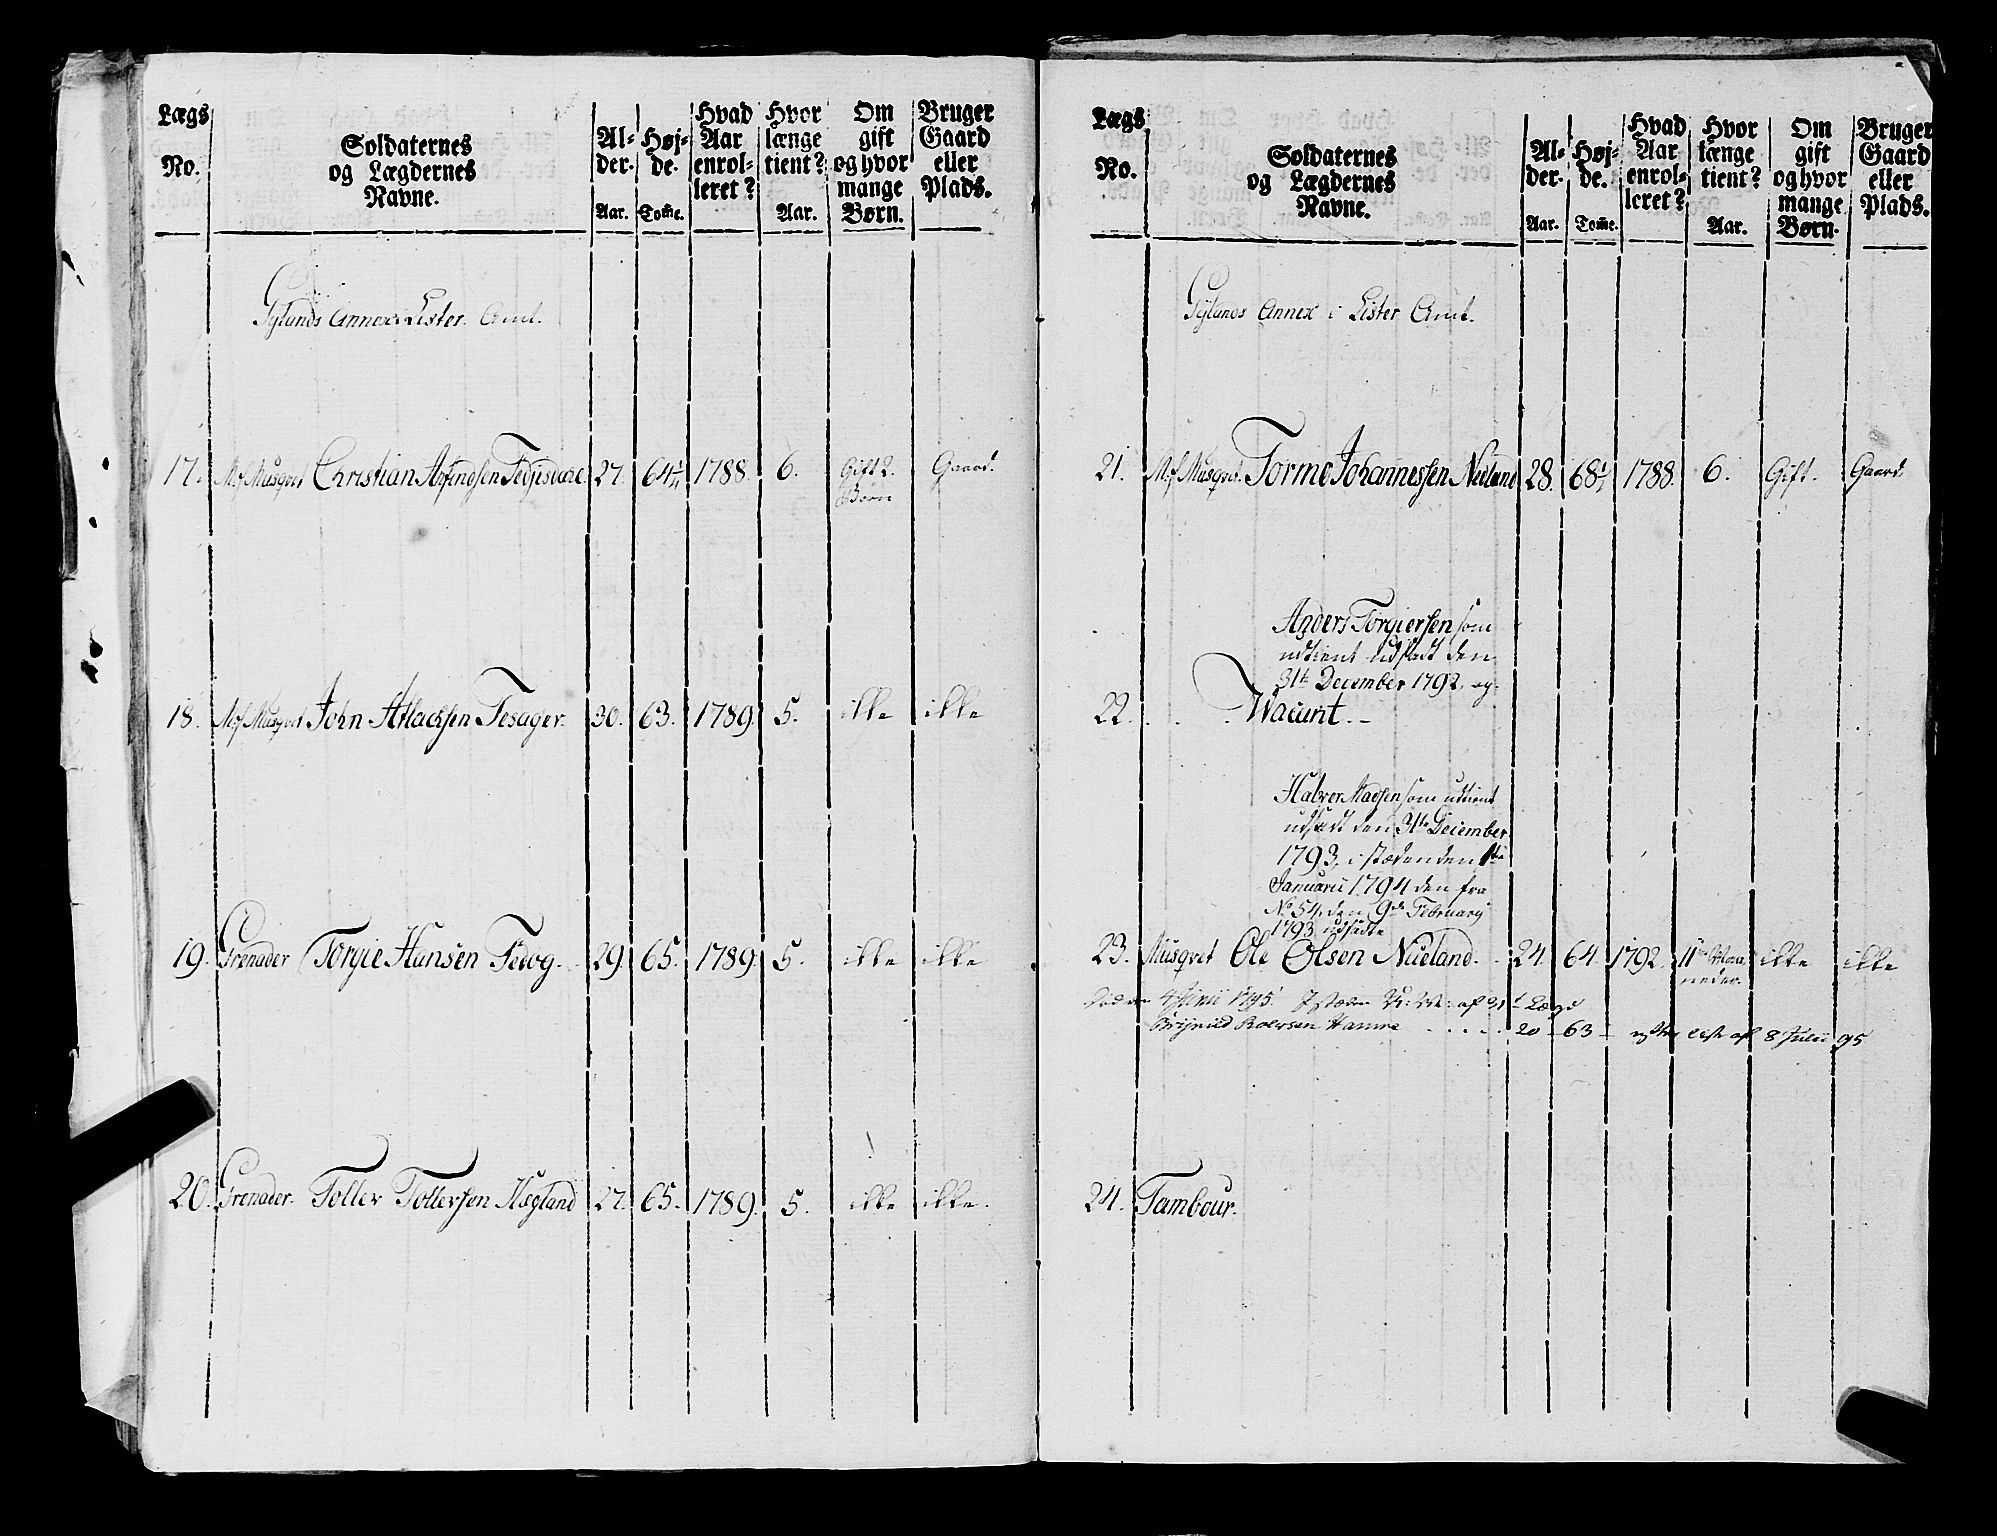 Lægs No. | Soldaternes og Lægdernes Navne. | Al-der. Aar. | Høj-de. Tome. | Hvad Aar enrol-leret? | Hvor længe tient? Aar. | Om gift og hvor mange Børn. | Bruger Gaard eller Plads.
Gylands Annex i Lister Amt.
17. Musqvet Christian 27. 64¼ 1788. 6. Gift 2. Gaard.
Børn
18. Musqvet John Atlachsen Fesager. 30. 63. 1789. 5. ikke ikke
19. Grenader Torgie Hansen Fedog. 29. 65. 1789. 5. ikke ikke
20. Grenader. Toller Tollersen Hægland 27. 65. 1789. 5. ikke ikke.
Lægs No. | Soldaternes og Lægdernes Navne. | Al-der. Aar. | Høj-de. Tome. | Hvad Aar enrol-leret? | Hvor længe tient? Aar. | Om gift og hvor mange Børn. | Bruger Gaard eller Plads.
Gylands Annex i Lister Amt.
21. Musqvet. Torme Johannessen Nuland 28. 1788. 6. Gift. Gaard
Anders Torgiersen som
udtient udsadt den
31te December 1792, og
22. Wacant.
Halver Madsen som udtient
udsadt den 31te December
1793, i stæden den 1te
Januarii 1794 den fra
No 54, den 9de February
1793 udsadte
23. Musqvet Ole Olsen Nueland. 24. 64. 1792. 11 Maa ikke ikke
neder.
Død den 4 Junii 1795. I stæden af 31 Lægd
Roersen Hamre 20 63 liste af 8 Julii 95
24. Tambour.